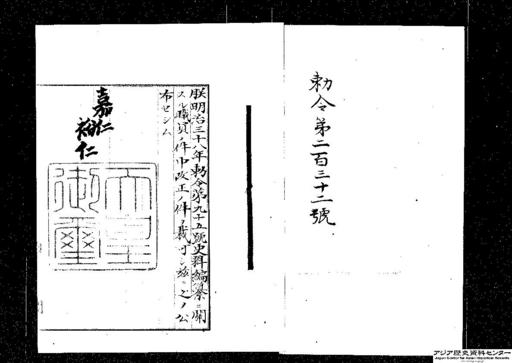 勅令第二百三十二號
朕明治三十八年勅令第九十五號史料編纂ニ關
スル職員ノ件中改正ノ件ヲ裁可シ茲ニ之ヲ公
布セシム
嘉仁
裕仁
天皇
御璽
アジア歴史資料センター
Japan Center for Asian Historical Records